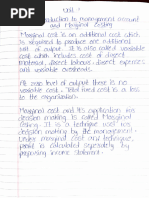 Unit 1
Introduction to management account
and Marginal Costing
Marginal cost is an additional cost which
is required to produce one additional
unit of output. It is also called variable
cost which includes cost of direct
material, direct labour, direct expenses
and variable overheads.
At zero level of output there is no
variable cost. Total fixed cost is a loss
to the organisation.
Marginal cost and its application in
decision making is called Marginal
Costing. It is a technique used in
decision making by the management.
Under marginal cost technique,
profit is calculated separately by
preparing income statement.